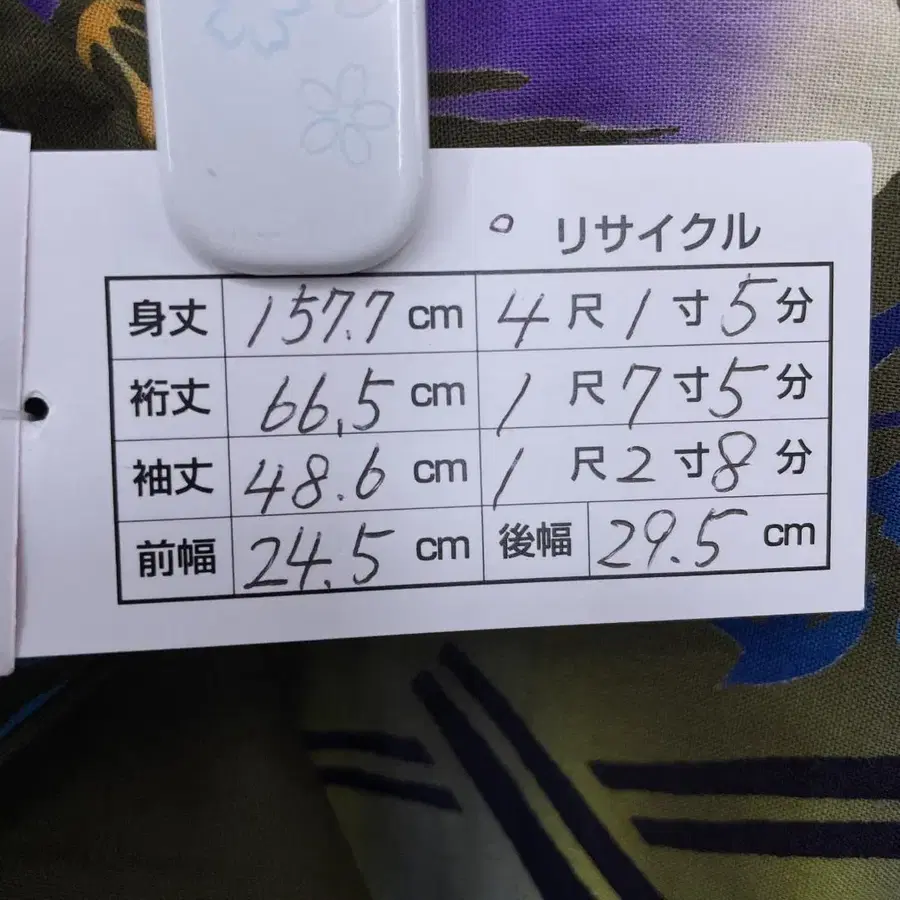 リサイクル
身丈 157.7 cm 4尺1寸5分
裄丈 66.5 cm 1尺7寸5分
袖丈 48.6 cm 1尺2寸8分
前幅 24.5 cm 後幅 29.5 cm